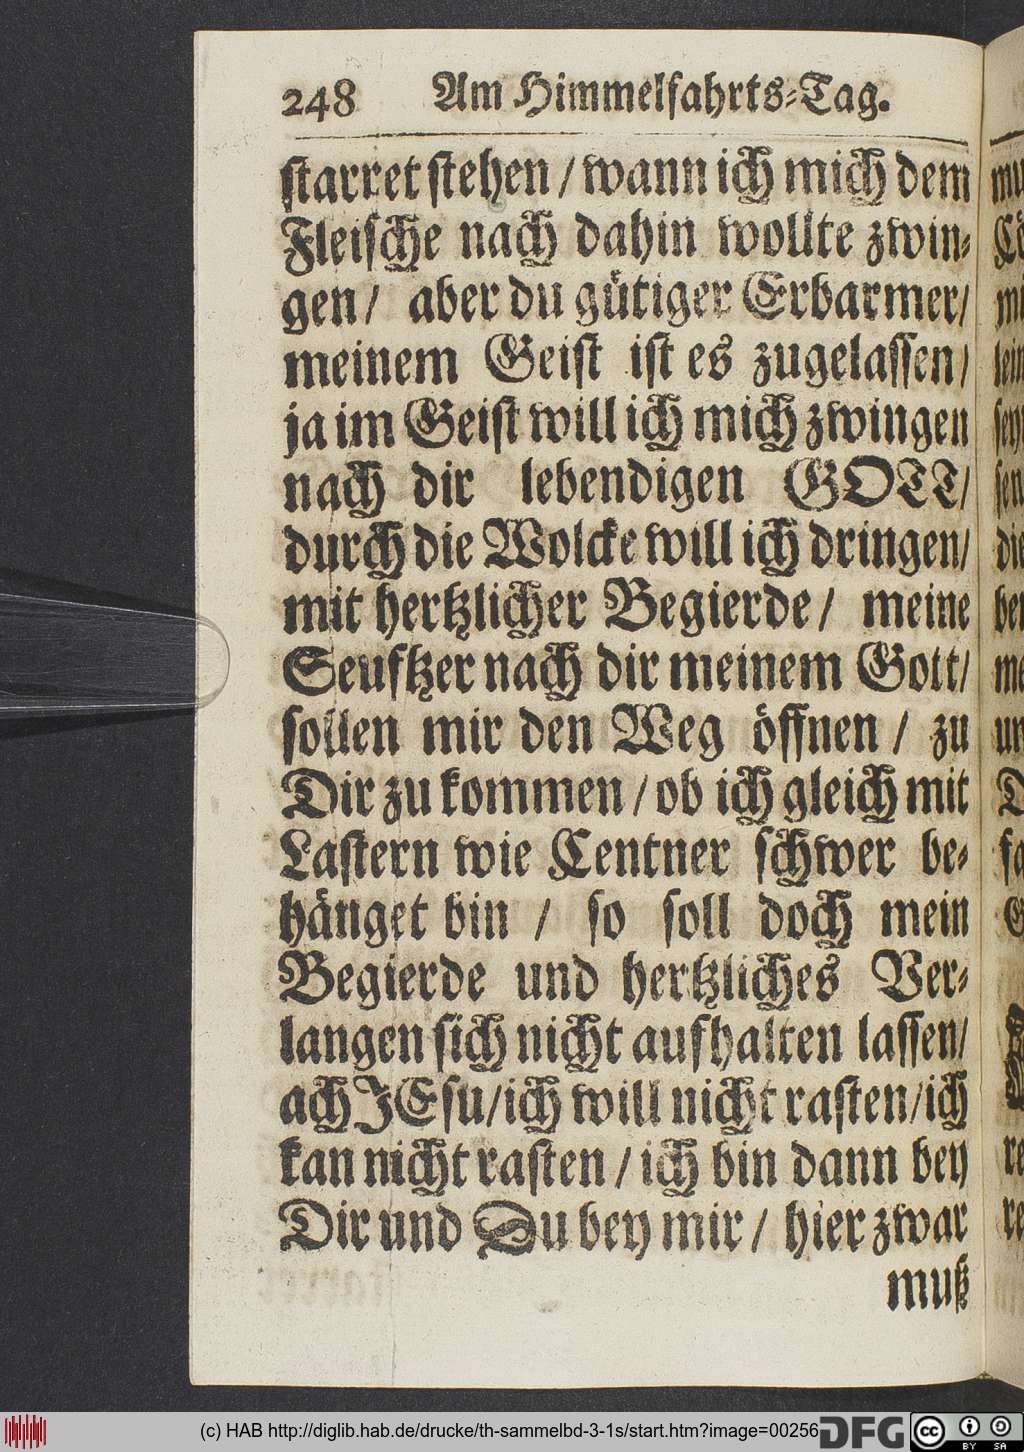 248 Am Himmelfahrts-Tag.
starret stehen / wann ich mich dem
Fleische nach dahin wollte zwin-
gen / aber du gütiger Erbarmer /
meinem Geist ist es zugelassen /
ja im Geist will ich mich zwingen
nach dir lebendigen GOTT /
durch die Wolcke will ich dringen /
mit hertzlicher Begierde / meine
Seufftzer nach dir meinem Gott /
sollen mir den Weg öffnen / zu
Dir zu kommen / ob ich gleich mit
Lastern wie Centner schwer be-
hänget bin / so soll doch mein
Begierde und hertzliches Ver-
langen sich nicht aufhalten lassen /
ach JEsu / ich will nicht rasten / ich
kan nicht rasten / ich bin dann bey
Dir und Du bey mir / hier zwar
muß
(c) HAB http://diglib.hab.de/drucke/th-sammelbd-3-1s/start.htm?image=00256
DFG
cc BY SA